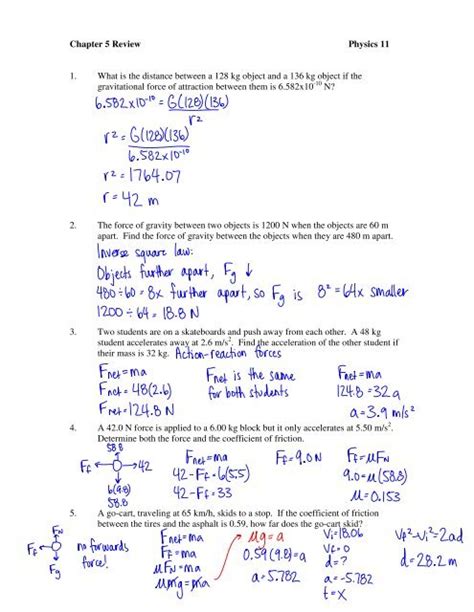 Chapter 5 Review Physics 11
1. What is the distance between a 128 kg object and a 136 kg object if the
gravitational force of attraction between them is 6.582x10⁻¹⁰ N?
6.582x10⁻¹⁰ = G(128)(136)
r²
r² = G(128)(136)
6.582x10⁻¹⁰
r² = 1764.07
r = 42 m
2. The force of gravity between two objects is 1200 N when the objects are 60 m
apart. Find the force of gravity between the objects when they are 480 m apart.
Inverse square law:
Objects further apart, Fg ↓
480 ÷ 60 = 8x further apart, so Fg is 8² = 64x smaller
1200 ÷ 64 = 18.8 N
3. Two students are on a skateboards and push away from each other. A 48 kg
student accelerates away at 2.6 m/s². Find the acceleration of the other student if
their mass is 32 kg. Action-reaction forces
Fnet = ma Fnet is the same Fnet = ma
Fnet = 48(2.6) for both students 124.8 = 32a
Fnet = 124.8 N a = 3.9 m/s²
4. A 42.0 N force is applied to a 6.00 kg block but it only accelerates at 5.50 m/s².
Determine both the force and the coefficient of friction.
58.8
Ff ← → 42 Fnet = ma Ff = 9.0 N Ff = μFN
42 - Ff = 6(5.5) 9.0 = μ(58.8)
6(9.8) 42 - Ff = 33 μ = 0.153
58.8
5. A go-cart, traveling at 65 km/h, skids to a stop. If the coefficient of friction
between the tires and the asphalt is 0.59, how far does the go-cart skid?
FN Fnet = ma μg = a Vi = 18.06 Vf² - Vi² = 2ad
Ff no forwards Ff = ma 0.59(9.8) = a Vf = 0 d = 28.2 m
force! μFN = ma a = 5.782 d = ?
Fg μmg = ma a = -5.782
t = x